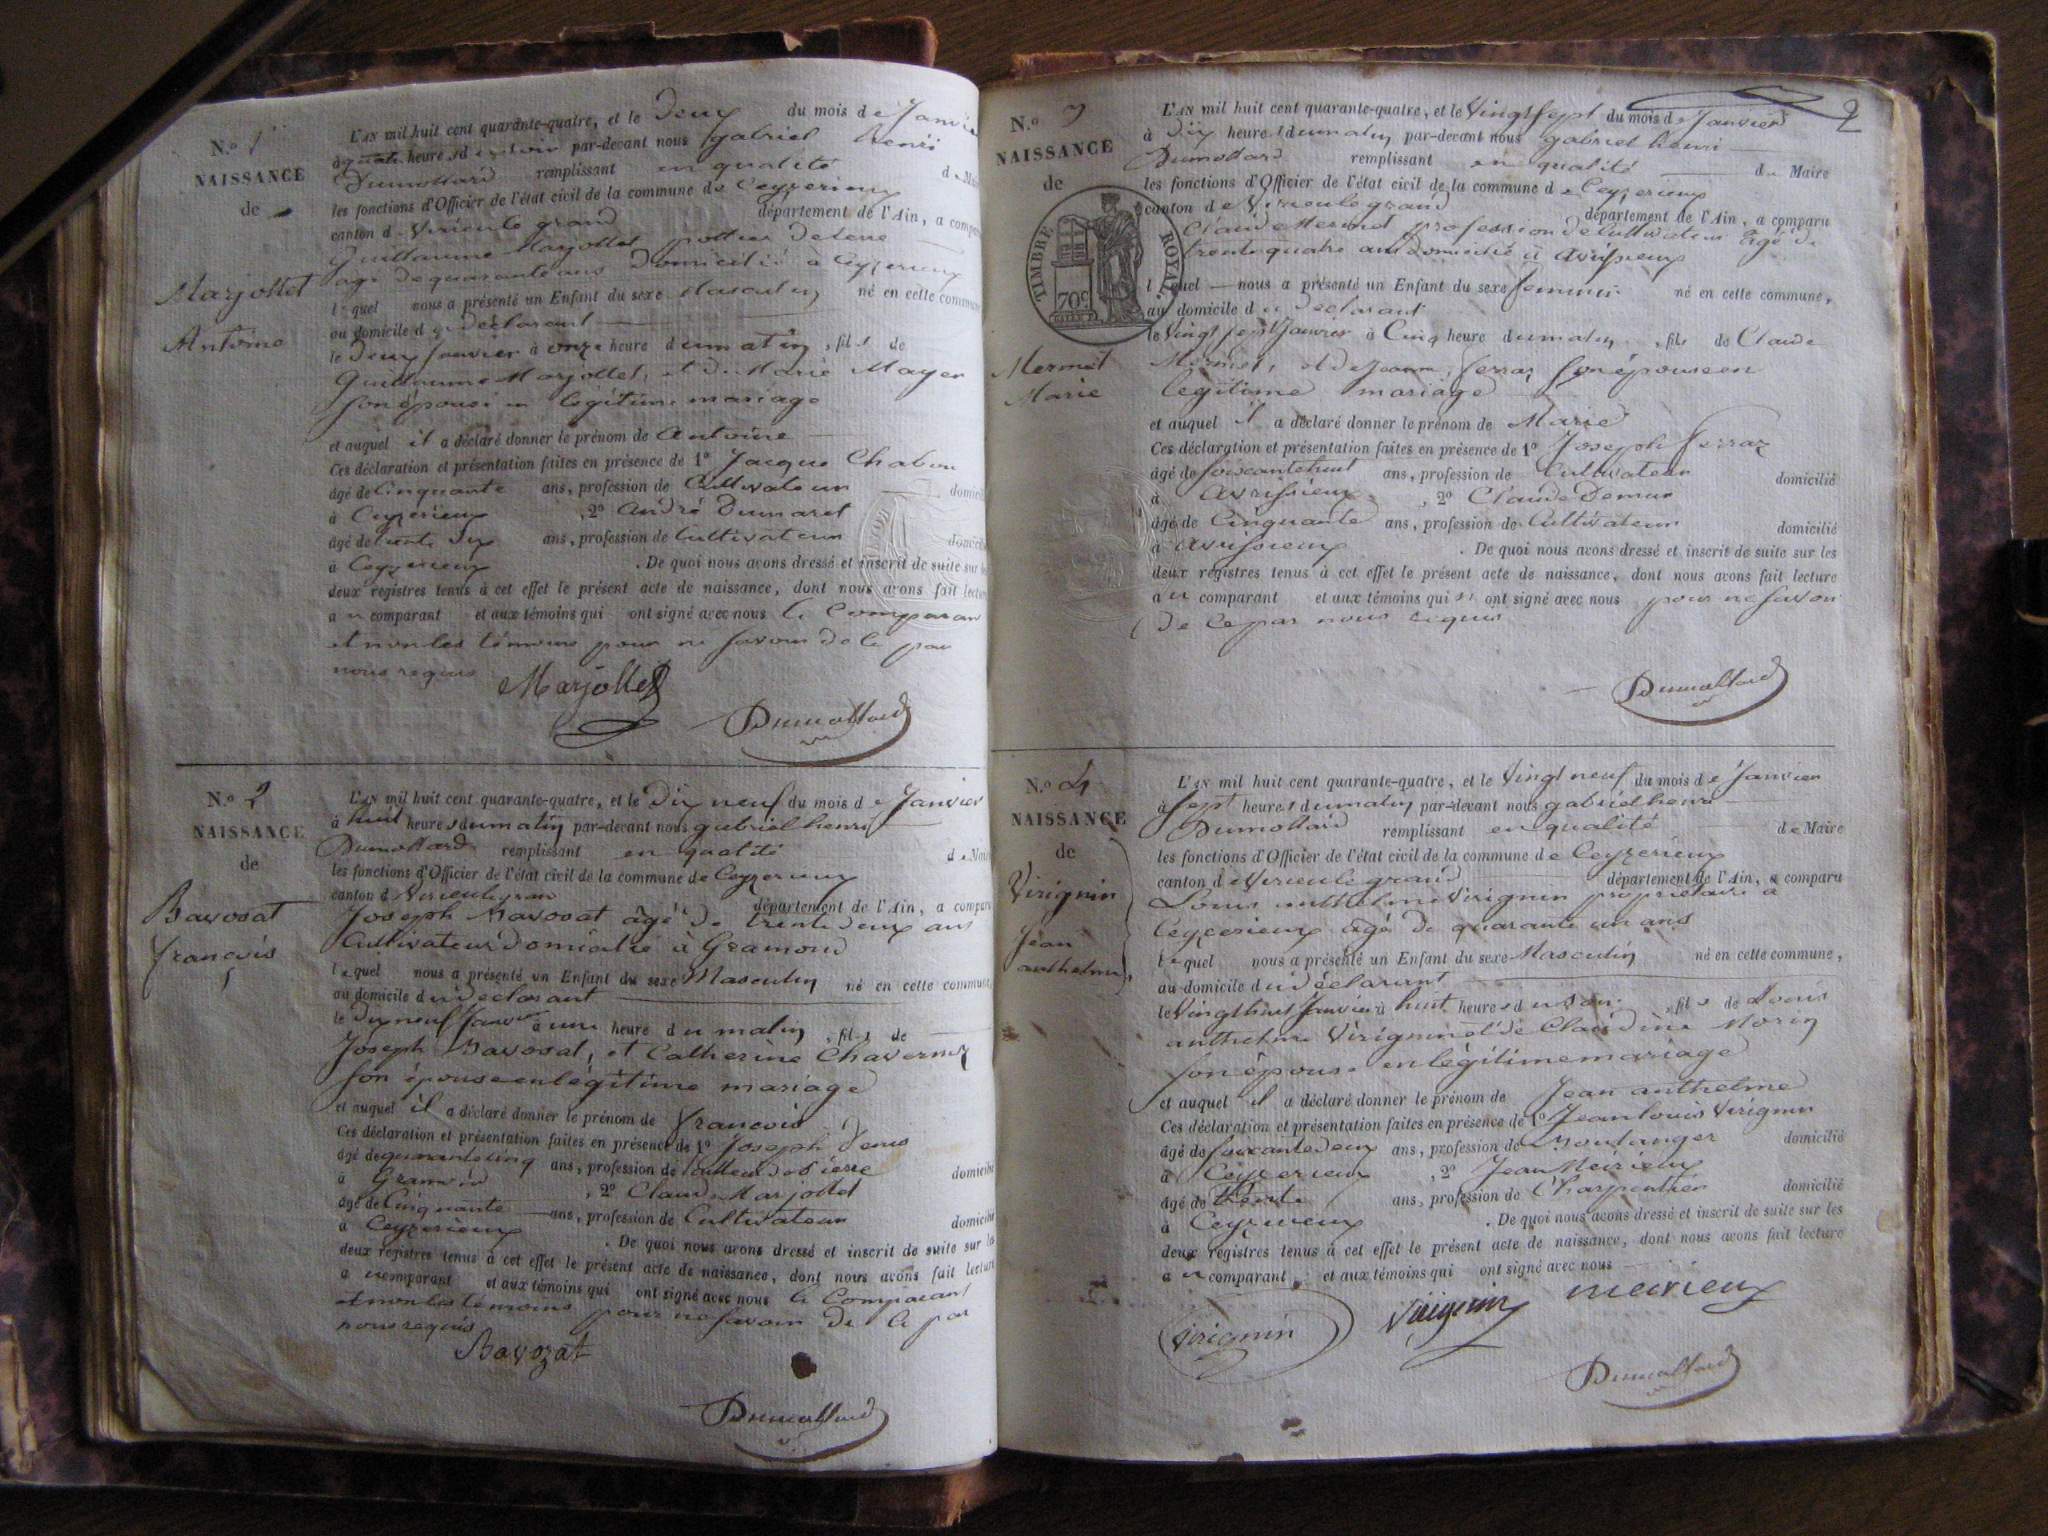 N.o 1
NAISSANCE
de
Marjollet
Antoine
L'AN mil huit cent quarante-quatre, et le Deux du mois de Janvier
à quatre heures du soir par-devant nous gabriel henri
Dumollard remplissant en qualité de Maire
les fonctions d'Officier de l'état civil de la commune de Ceyzerieux
canton d Virieu le grand département de l'Ain, a comparu
Guillaume Marjollet pottier de terre
agé de quarante ans Domicilié à Ceyzerieux
lequel nous a présenté un Enfant du sexe Masculin né en cette commune
au domicile du Déclarant
le Deux Janvier à onze heure du matin, fils de
Guillaume Marjollet, et de Marie Mayer
son épouse en légitime mariage
et auquel il a déclaré donner le prénom de Antoine
Ces déclaration et présentation faites en présence de 1o Jacque Chabou
âgé de Cinquante ans, profession de Cultivateur domicilié
à Ceyzerieux, 2o André Dumaret
âgé de trente dix ans, profession de Cultivateur domicilié
à Ceyzerieux. De quoi nous avons dressé et inscrit de suite sur les
deux registres tenus à cet effet le présent acte de naissance, dont nous avons fait lecture
au comparant et aux témoins qui ont signé avec nous le comparant
et non les témoins pour ne savoir de ce par
nous requis
Marjollet
Dumollard
N.o 2
NAISSANCE
de
Bavosat
françois
L'AN mil huit cent quarante-quatre, et le Dix neuf du mois de Janvier
à huit heures du matin par-devant nous gabriel henri
Dumollard remplissant en qualité de Maire
les fonctions d'Officier de l'état civil de la commune de Ceyzerieux
canton d Virieu le gran département de l'Ain, a comparu
Joseph Bavosat âgé de trente deux ans
Cultivateur domicilié à Gramond
lequel nous a présenté un Enfant du sexe Masculin né en cette commune,
au domicile du déclarant
le Dix neuf Janvier à une heure du matin, fils de
Joseph Bavosat, et Catherine Chavernez
son épouse en légitime mariage
et auquel il a déclaré donner le prénom de françois
Ces déclaration et présentation faites en présence de 1o Joseph Venus
âgé de quarante cinq ans, profession de tailleur de Pierre domicilié
à Gramond, 2o Claude Marjollet
âgé de Cinquante ans, profession de Cultivateur domicilié
à Ceyzerieux. De quoi nous avons dressé et inscrit de suite sur les
deux registres tenus à cet effet le présent acte de naissance, dont nous avons fait lecture
au comparant et aux témoins qui ont signé avec nous le Comparant
et non les témoins pour ne savoir de ce par
nous requis
Bavozat
Dumollard
2
N.o 3
NAISSANCE
de
TIMBRE ROYAL
70c
Mermet
Marie
L'AN mil huit cent quarante-quatre, et le Vingt sept du mois de Janvier
à Dix heures du matin par-devant nous gabriel henri
Dumollard remplissant en qualité du Maire
les fonctions d'Officier de l'état civil de la commune de Ceyzerieux
canton de Virieu le grand département de l'Ain, a comparu
Claude Mermet profession de Cultivateur âgé de
trente quatre ans domicilié à Avrissieux
lequel nous a présenté un Enfant du sexe feminin né en cette commune,
au domicile du Déclarant
le Vingt sept Janvier à Cinq heure du matin, fils de Claude
Mermet, et de Jeanne ferraz son épouse en
légitime mariage
et auquel il a déclaré donner le prénom de Marie
Ces déclaration et présentation faites en présence de 1o Joseph ferraz
âgé de soixante huit ans, profession de Cultivateur domicilié
à Avrissieux, 2o Claude Demur
âgé de Cinquante ans, profession de Cultivateur domicilié
à avrissieux. De quoi nous avons dressé et inscrit de suite sur les
deux registres tenus à cet effet le présent acte de naissance, dont nous avons fait lecture
au comparant et aux témoins qui n'ont signé avec nous pour ne savoir
de ce par nous requis
Dumollard
N.o 4
NAISSANCE
de
Virignin
Jean
anthelme
L'AN mil huit cent quarante-quatre, et le Vingt neuf du mois de Janvier
à sept heures du matin par-devant nous gabriel henri
Dumollard remplissant en qualité de Maire
les fonctions d'Officier de l'état civil de la commune de Ceyzerieux
canton de Virieu le grand département de l'Ain, a comparu
Louis anthelme Virignin propriétaire à
Ceyzerieux agé de quarante un ans
lequel nous a présenté un Enfant du sexe Masculin né en cette commune,
au domicile du déclarant
le Vingt huit Janvier à huit heures du soir, fils de Louis
anthelme Virignin et de Claudine Morin
son épouse en légitime mariage
et auquel il a déclaré donner le prénom de Jean anthelme
Ces déclaration et présentation faites en présence de 1o Jean louis Virignin
âgé de soixante deux ans, profession de Boulanger domicilié
à Ceyzerieux, 2o Jean Meirieux
âgé de trente ans, profession de Charpentier domicilié
à Ceyzerieux. De quoi nous avons dressé et inscrit de suite sur les
deux registres tenus à cet effet le présent acte de naissance, dont nous avons fait lecture
au comparant et aux témoins qui ont signé avec nous
Virignin Virignin meirieux
Dumollard